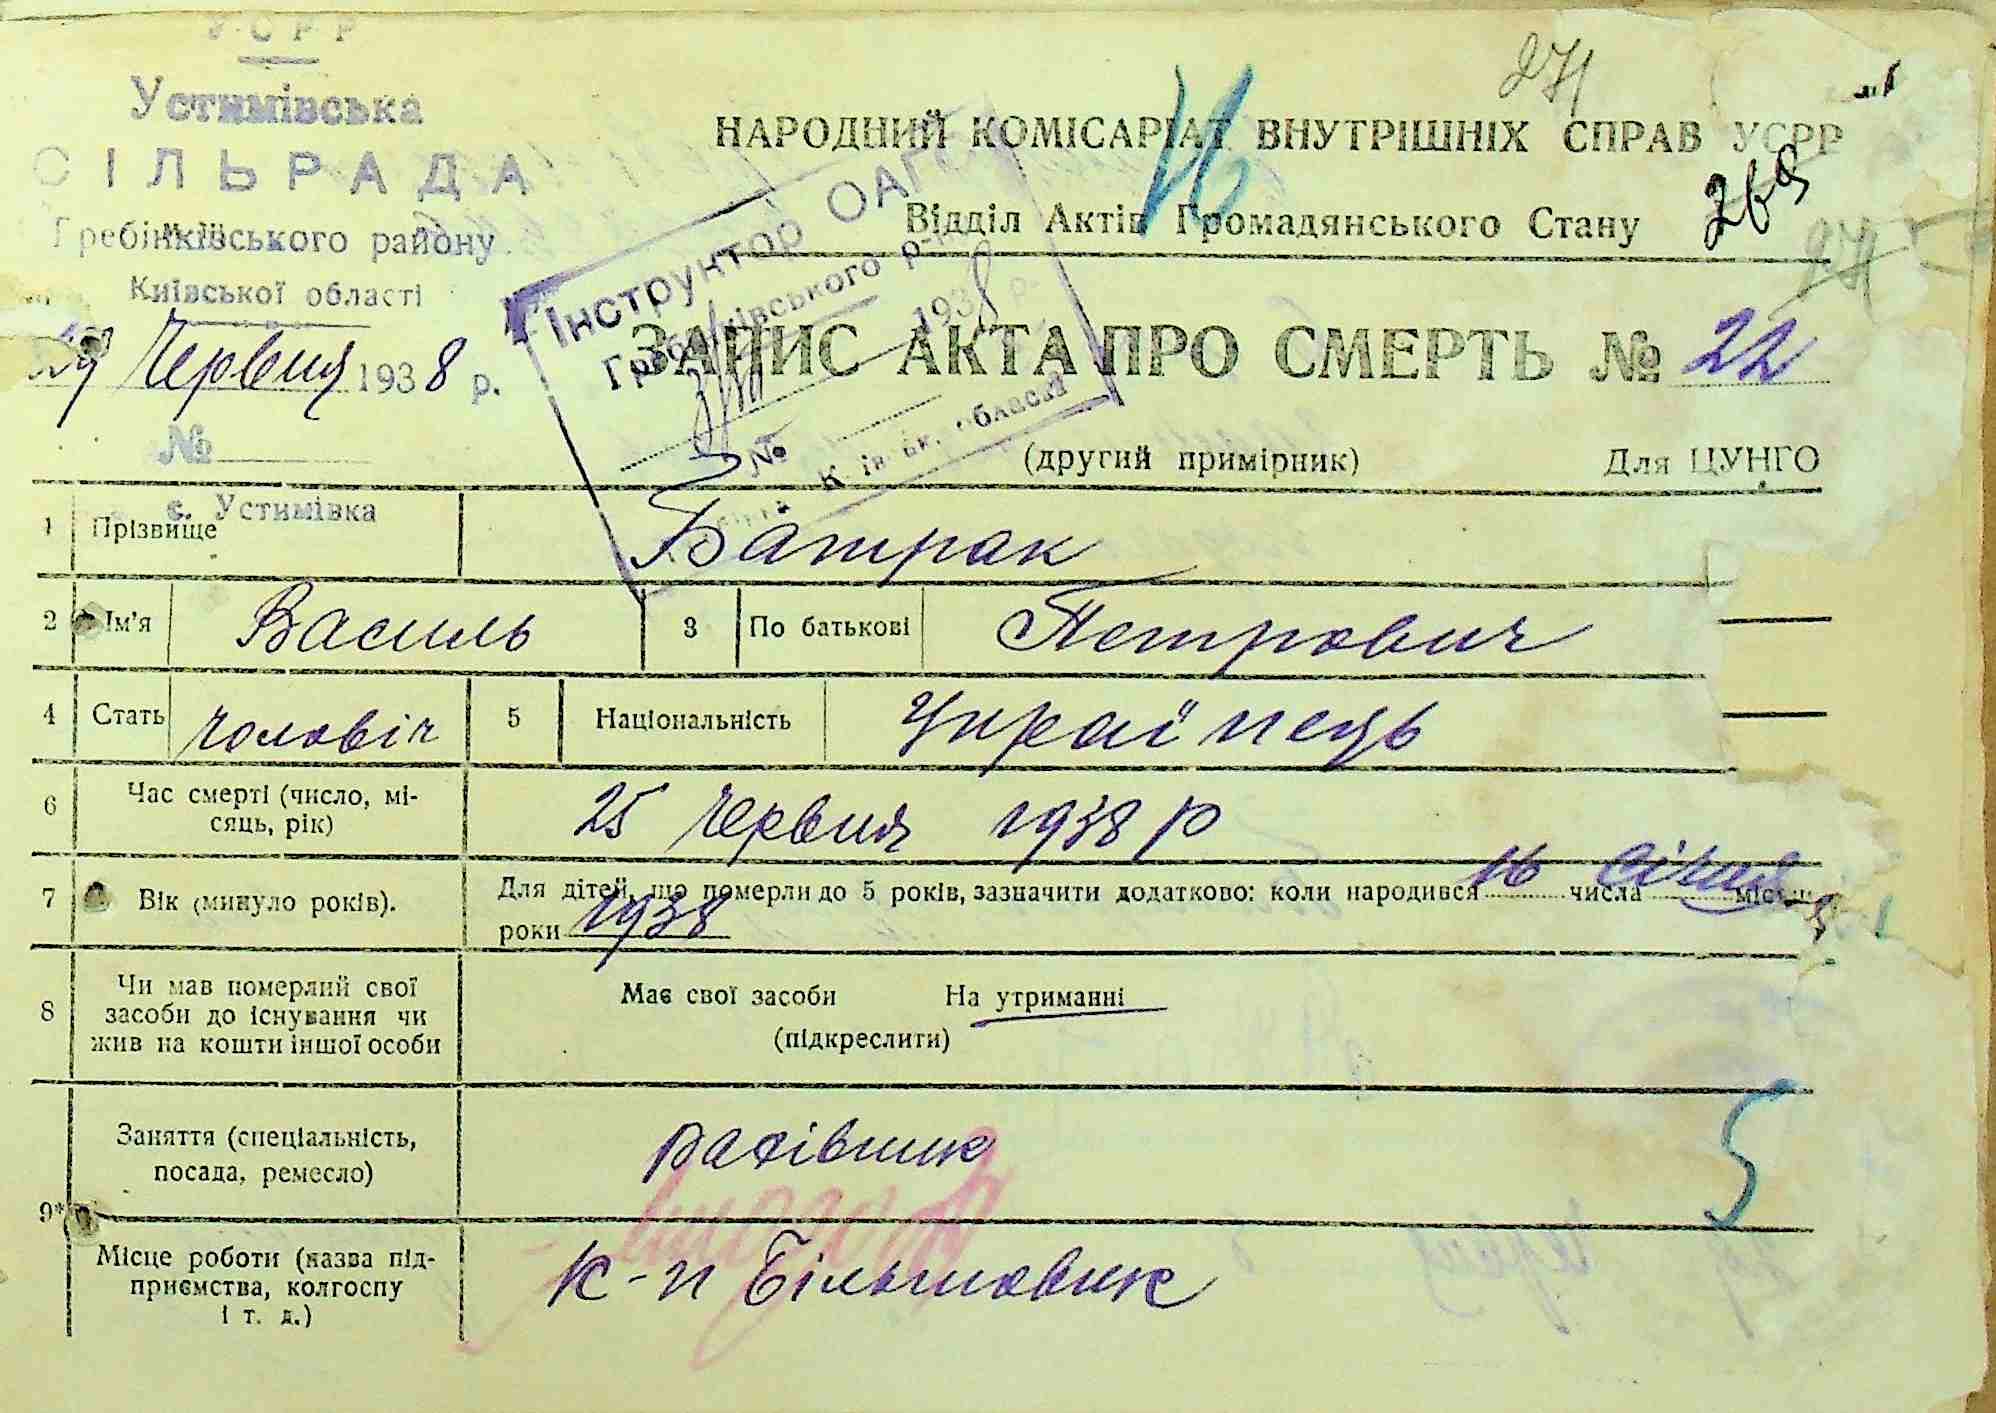 УСРР
Устимівська
СІЛЬРАДА
Гребінківського району
Київської області
Червня 1938 р.
№
с. Устимівка
271
НАРОДНИЙ КОМІСАРІАТ ВНУТРІШНІХ СПРАВ УСРР
16
269
Відділ Актів Громадянського Стану
271
Інструктор ОАГС
Гребінківського р-
1938 р.
№
області
ЗАПИС АКТА ПРО СМЕРТЬ № 22
(другий примірник) Для ЦУНГО
1 Прізвище Батрак
2 Ім'я Василь 3 По батькові Петрович
4 Стать чоловіч 5 Національність Українець
6 Час смерті (число, мі-
сяць, рік) 25 червня 1938 р
7 Вік (минуло років). Для дітей, що померли до 5 років, зазначити додатково: коли народився 16 числа січня місяця
роки 1938
8 Чи мав померлий свої
засоби до існування чи
жив на кошти іншої особи
Має свої засоби На утриманні
(підкреслити)
9* Заняття (спеціальність,
посада, ремесло) рахівник
5
Місце роботи (назва під-
приємства, колгоспу
і т. д.) к-п Більшовик